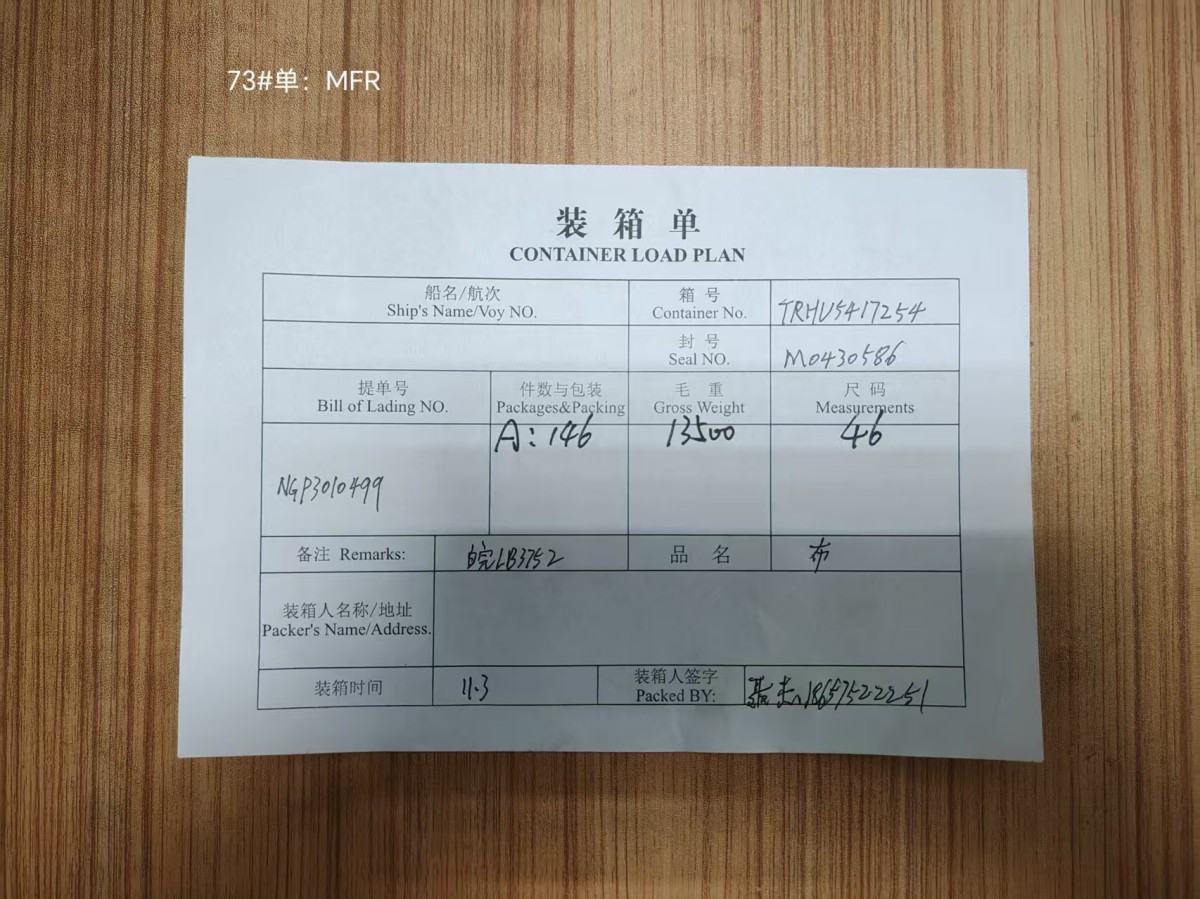 73#单：MFR
装 箱 单
CONTAINER LOAD PLAN
船名/航次
Ship's Name/Voy NO.
箱 号
Container No.
TRHU5417254
封 号
Seal NO.
M0430586
提单号
Bill of Lading NO.
件数与包装
Packages&Packing
毛 重
Gross Weight
尺 码
Measurements
A: 146
13500
46
NGP3010499
备注 Remarks:
皖LB3752
品 名
布
装箱人名称/地址
Packer's Name/Address.
装箱时间
11.3
装箱人签字
Packed BY:
18657522251